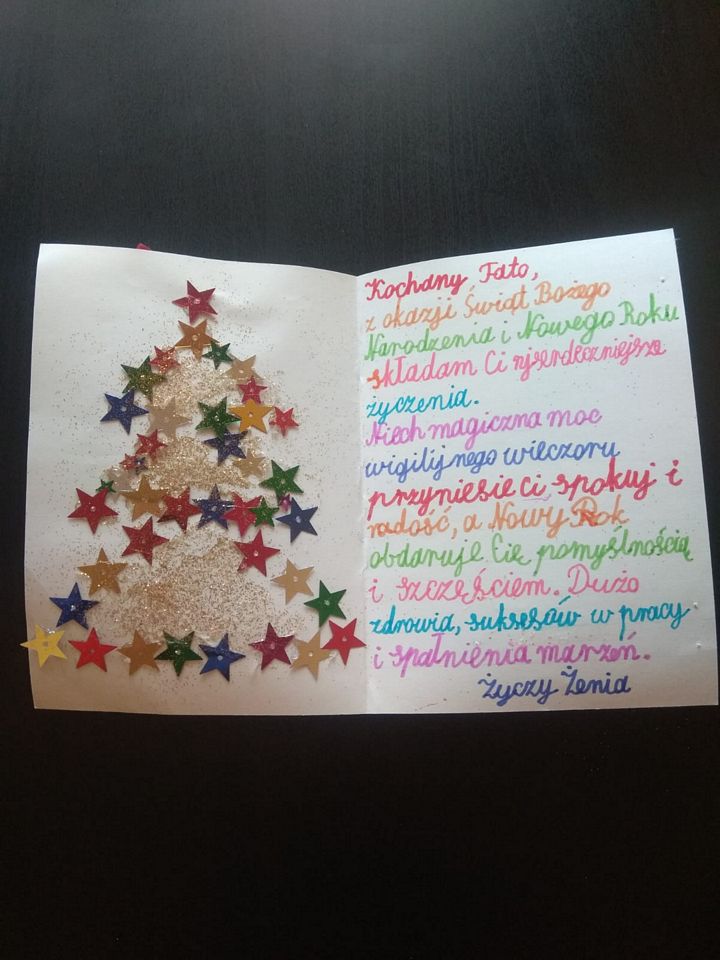 Kochany Tato,
z okazji Świąt Bożego
Narodzenia i Nowego Roku
składam Ci njserdeczniejsze
życzenia.
Niech magiczna moc
wigilijnego wieczoru
przyniesie Ci spokuj i
radość, a Nowy Rok
obdaruje Cie pomyślnością
i szczęściem. Dużo
zdrowia, suksesów w pracy
i spałnienia marzeń.
Życzy Żenia